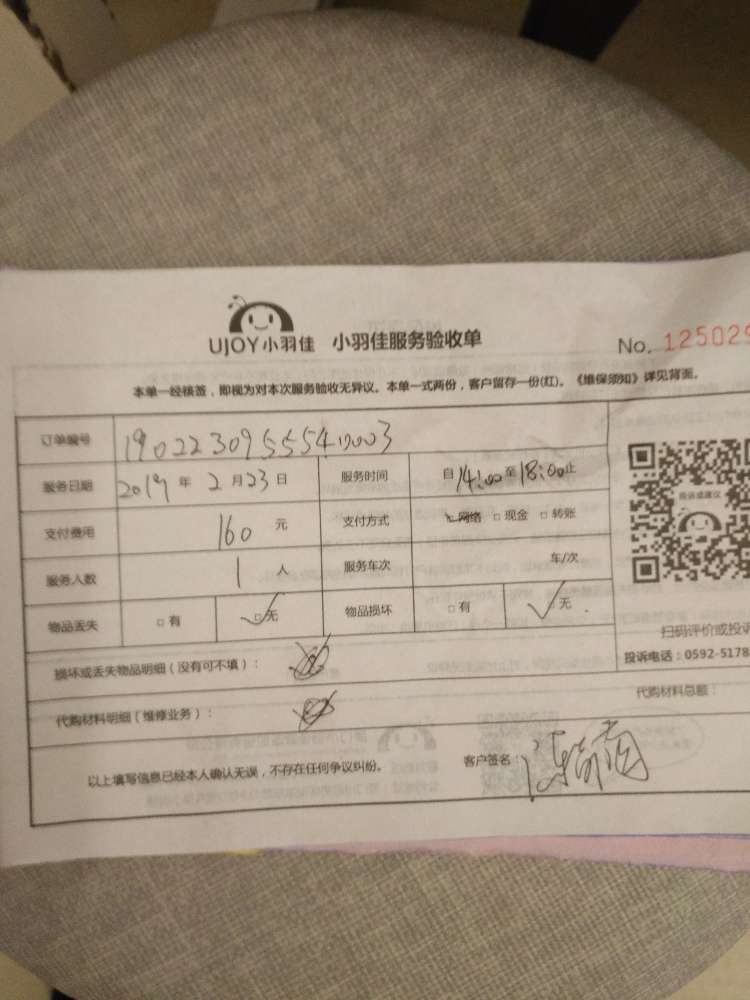 UJOY小羽佳 小羽佳服务验收单 No. 125029
本单一经核签，即视为对本次服务验收无异议。本单一式两份，客户留存一份(红)。《维保须知》详见背面。
订单编号
服务日期 2019 年 2 月 23 日 服务时间 自 14:00 至 18:00 止
投诉或建议
支付费用 160 元 支付方式 网络 □ 现金 □ 转账
服务人数 1 人 服务车次 车/次
物品丢失 □ 有 □ 无 物品损坏 □ 有 □ 无
扫码评价或投诉
投诉电话：0592-5178
损坏或丢失物品明细（没有可不填）：
代购材料明细（维修业务）： 代购材料总额：
以上填写信息已经本人确认无误，不存在任何争议纠纷。 客户签名：